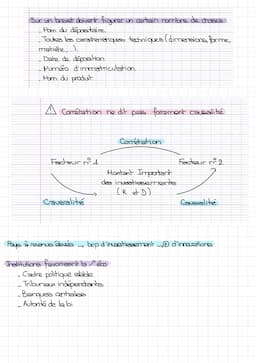 Sur un brevet doivent figurer un certain nombre de choses
- Nom du dépositaire.
- Toutes les caractéristiques techniques (dimensions, forme, matière...).
- Date de déposition
- Numéro d'immatriculation.
- Nom du produit.
⚠ Corrélation ne dit pas forcément causalité
Corrélation
Facteur n°1
Facteur n°2
Montant Important
des investissements
(R et D)
Causalité
Causalité
Pays à revenus élevés → bcp d'investissement → ⊕ d'innovations
Institutions favorisent la
- Cadre politique stable
- Tribunaux indépendantes
- Banques centrales
- Autorité de la loi